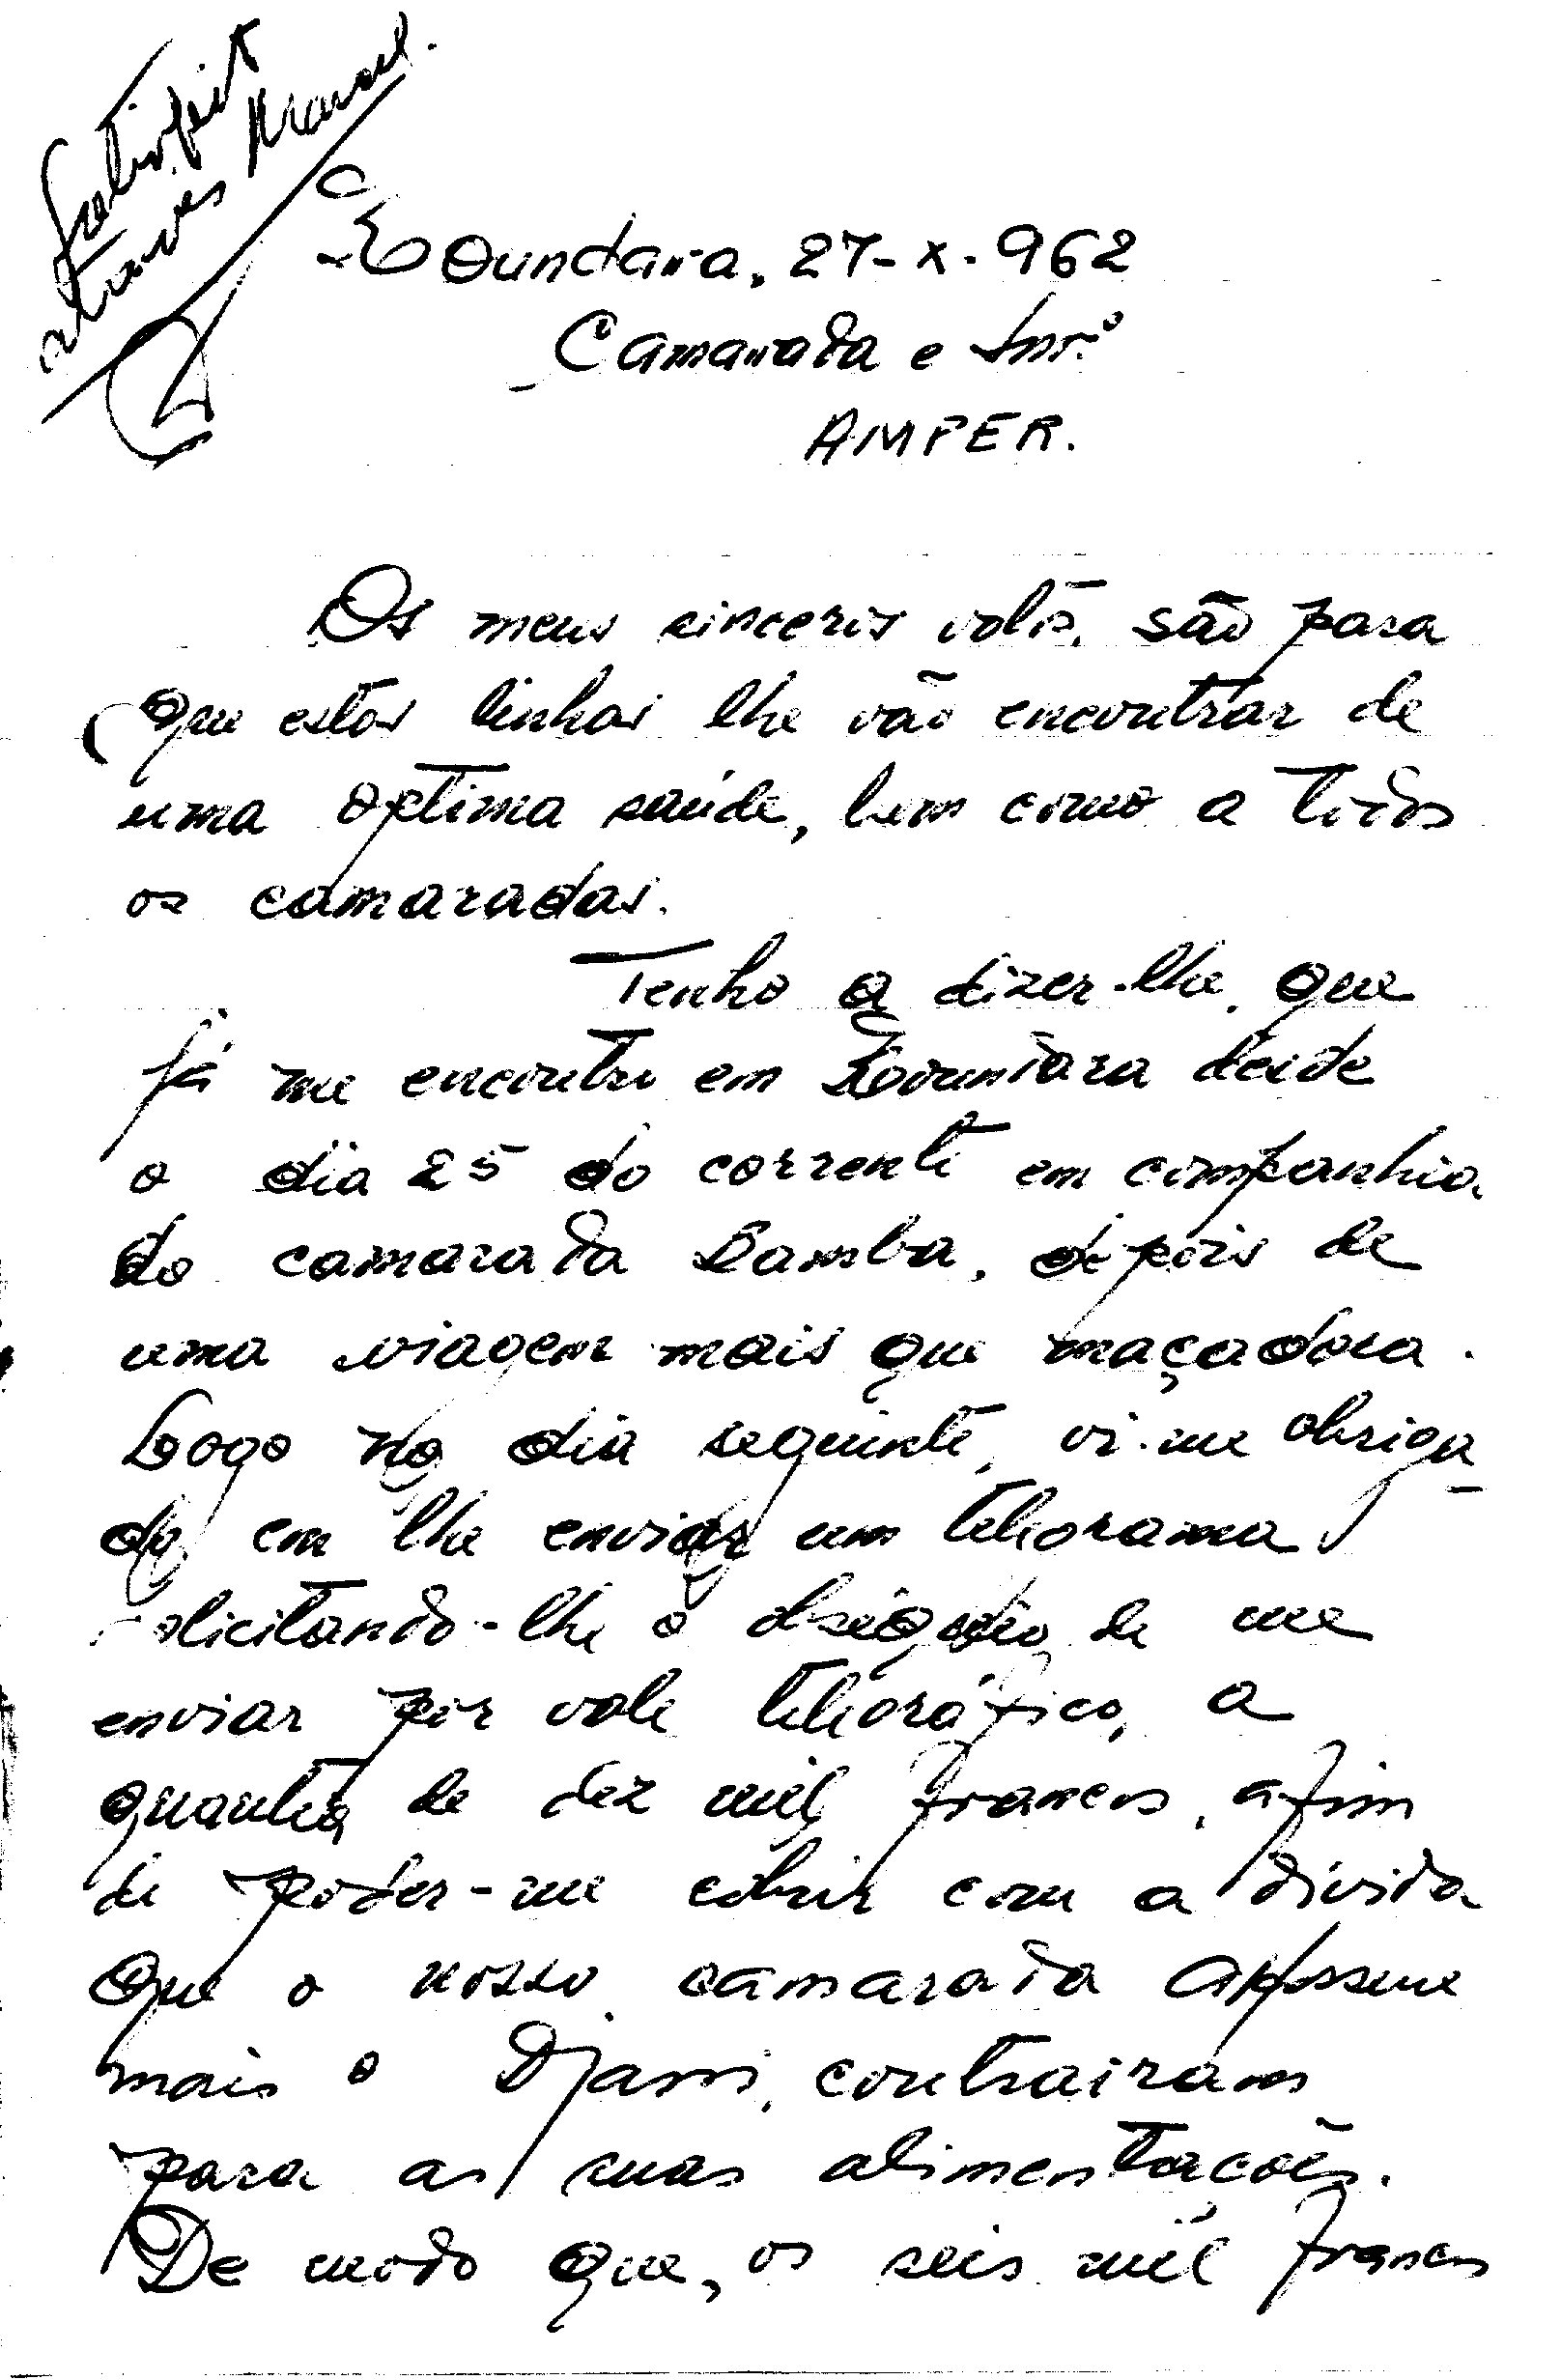 Satisfeito
através Marcel.
Koundara, 27-X-962
Camarada e Snr.º
AMPER.
Os meus sinceros votos, são para
que estas linhas lhe vão encontrar de
uma optima saúde, bem como a todos
os camaradas.
Tenho a dizer-lhe, que
já me encontro em Koundara desde
o dia 25 do corrente em companhia
do camarada Samba, depois de
uma viagem mais que maçadora.
Logo no dia seguinte, vi-me obriga-
do em lhe enviar um telegrama
solicitando-lhe o obséquio de me
enviar por vale telegráfico, a
quantia de dez mil francos, afim
de poder-me cobrir com a dívida
que o nosso camarada
mais o Djassi, contrairam
para as suas alimentações.
De modo que, os seis mil francos